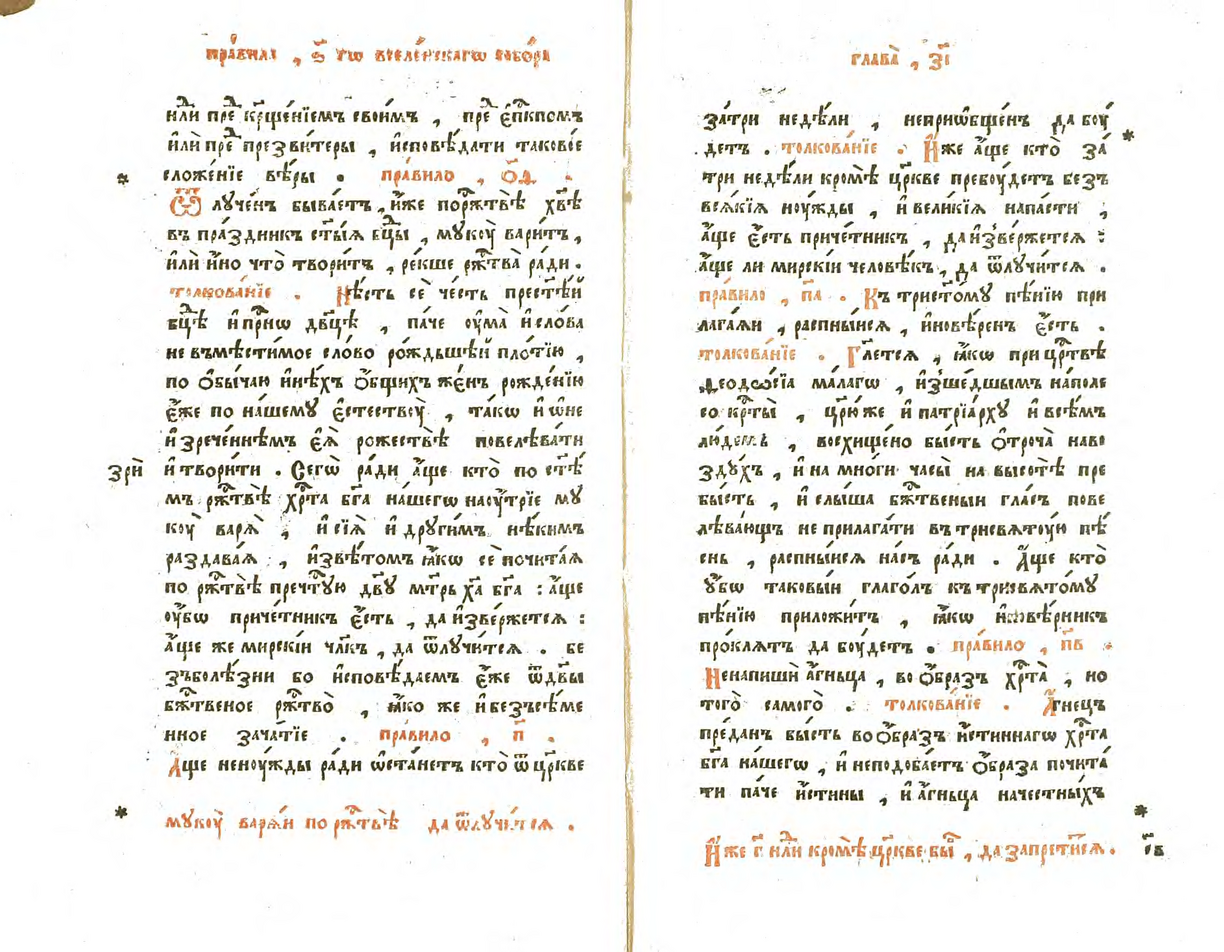 пра́вила , ѕ҃ гѡ вселе́нскагѡ собо́ра
и҆лѝ пред̾ кр҃ще́нїемъ свои́мъ , пред̾ є҆п҃кпомъ
и҆лѝ пред̾ презви́теры , и҆сповѣ́дати таково́е
сложе́нїе вѣ́ры . пра́вило , о҃д .
Ѿлуче́нъ быва́етъ , и҆́же пор̾ж҃твѣ̀ хв҃ѣ
въ пра́здникъ ст҃ы́ѧ бц҃ы , мукꙋ̀ вари́тъ ,
и҆лѝ и҆́но что̀ твори́тъ , ре́кше рж҃тва̀ ра́ди .
толкова́нїе . Нѣ́сть сѐ че́сть прест҃ѣ́й
бц҃ѣ и҆прⷭ҇нѡ дв҃цѣ , па́че оу҆ма̀ и҆сло́ва
невъмѣсти́мое сло́во ро́ждьшѣй пло́тїю ,
по ѻ҆бы́чаю и҆нѣ́хъ ѻ҆́бщихъ же́нъ рожде́нїю
є҆́же по на́шему є҆стествоу̀ , та́кѡ и҆ ѡ҆не
и҆зрече́ннѣмъ є҆ѧ̀ рожествѣ̀ повелѣва́ти
зрѝ
и҆твори́ти . Сегѡ̀ ра́ди а҆́ще кто̀ по ст҃ѣ́
мъ рж҃твѣ̀ хрⷭ҇та̀ бг҃а на́шегѡ наоу҆́трїе му
коу̀ варѧ̀ , и҆ сїѧ̀ и҆ други́мъ нѣ́кимъ
раздава́ѧ , и҆звѣ́томъ ꙗ҆́кѡ сѐ почита́ѧ
по рж҃твѣ̀ пречⷭ҇тую дв҃у мт҃рь ха҃ бг҃а : а҆́ще
оу҆́бѡ приче́тникъ є҆́сть , да и҆зве́ржетсѧ :
а҆́ще же мирскі́й чл҃къ , да ѿлучи́тсѧ . бе
зъболѣ́зни бо и҆сповѣ́даемъ є҆́же ѿдв҃ы
бж҃твеное рж҃тво̀ , ꙗ҆́ко же и҆ безъсѣ́ме
нное зача́тїе . пра́вило , п҃ .
А҆́ще неноу́жды ра́ди ѡ҆ста́нетъ кто̀ ѿ цр҃кве
мукоу̀ варѧ́й по рж҃твѣ̀ да ѿлучи́тсѧ .
глава̀ , з҃і
за́три недѣ́ли , неприѡ҆бще́нъ да боу́
детъ . толкова́нїе . И҆́же а҆́ще кто̀ за́
три недѣ́ли кромѣ̀ цр҃кве пребоу́детъ безъ
всѧ́кїѧ ноу́жды , и҆ вели́кїѧ напа́сти ,
а҆́ще є҆́сть приче́тникъ , да и҆зве́ржетсѧ :
а҆́ще ли мирскі́й человѣ́къ , да ѿлучи́тсѧ .
пра́вило , па҃ . Къ трист҃о́му пѣ́нїю при
лага́ѧй , распны́исѧ , и҆новѣ́ренъ є҆́сть .
толкова́нїе . Гл҃етсѧ , ꙗ҆́кѡ при цр҃твѣ
ѳеодо́сїа ма́лагѡ , и҆зше́дшымъ напо́ле
со кр҃ты̀ , цр҃ю́же и҆ патрїа́рху и҆ всѣ́мъ
лю́демъ , восхище́но бы́сть ѻ҆троча̀ наво
здꙋ́хъ , и҆ на мно́ги часы̀ на высотѣ̀ пре
бы́сть , и҆ слы́ша бж҃твеныи гла́съ пове
лѣва́ющъ не прилага́ти въ трисвѧту́ю пѣ́
снь , распны́исѧ на́съ ра́ди . А҆́ще кто̀
ᲂу҆́бѡ таковы́и глаго́лъ къ трисвѧто́му
пѣ́нїю приложи́тъ , ꙗ҆́кѡ и҆новѣ́рникъ
про́клѧтъ да боу́детъ . пра́вило , пв҃
Ненапишѝ а҆́гньца , во ѻ҆́бразъ хрⷭ҇та̀ , но
того̀ самого̀ . толкова́нїе . А҆́гнецъ
пре́данъ бы́сть во ѻ҆́бразъ и҆́стиннагѡ хрⷭ҇та̀
бг҃а на́шегѡ , и҆ неподоба́етъ ѻ҆́браза почита́
ти па́че и҆́стины , и҆ а҆́гньца наче́стны́хъ
И҆́же г҃ нд҃ли кромѣ̀ цр҃кве бы́в̾ , да запрети́тсѧ .